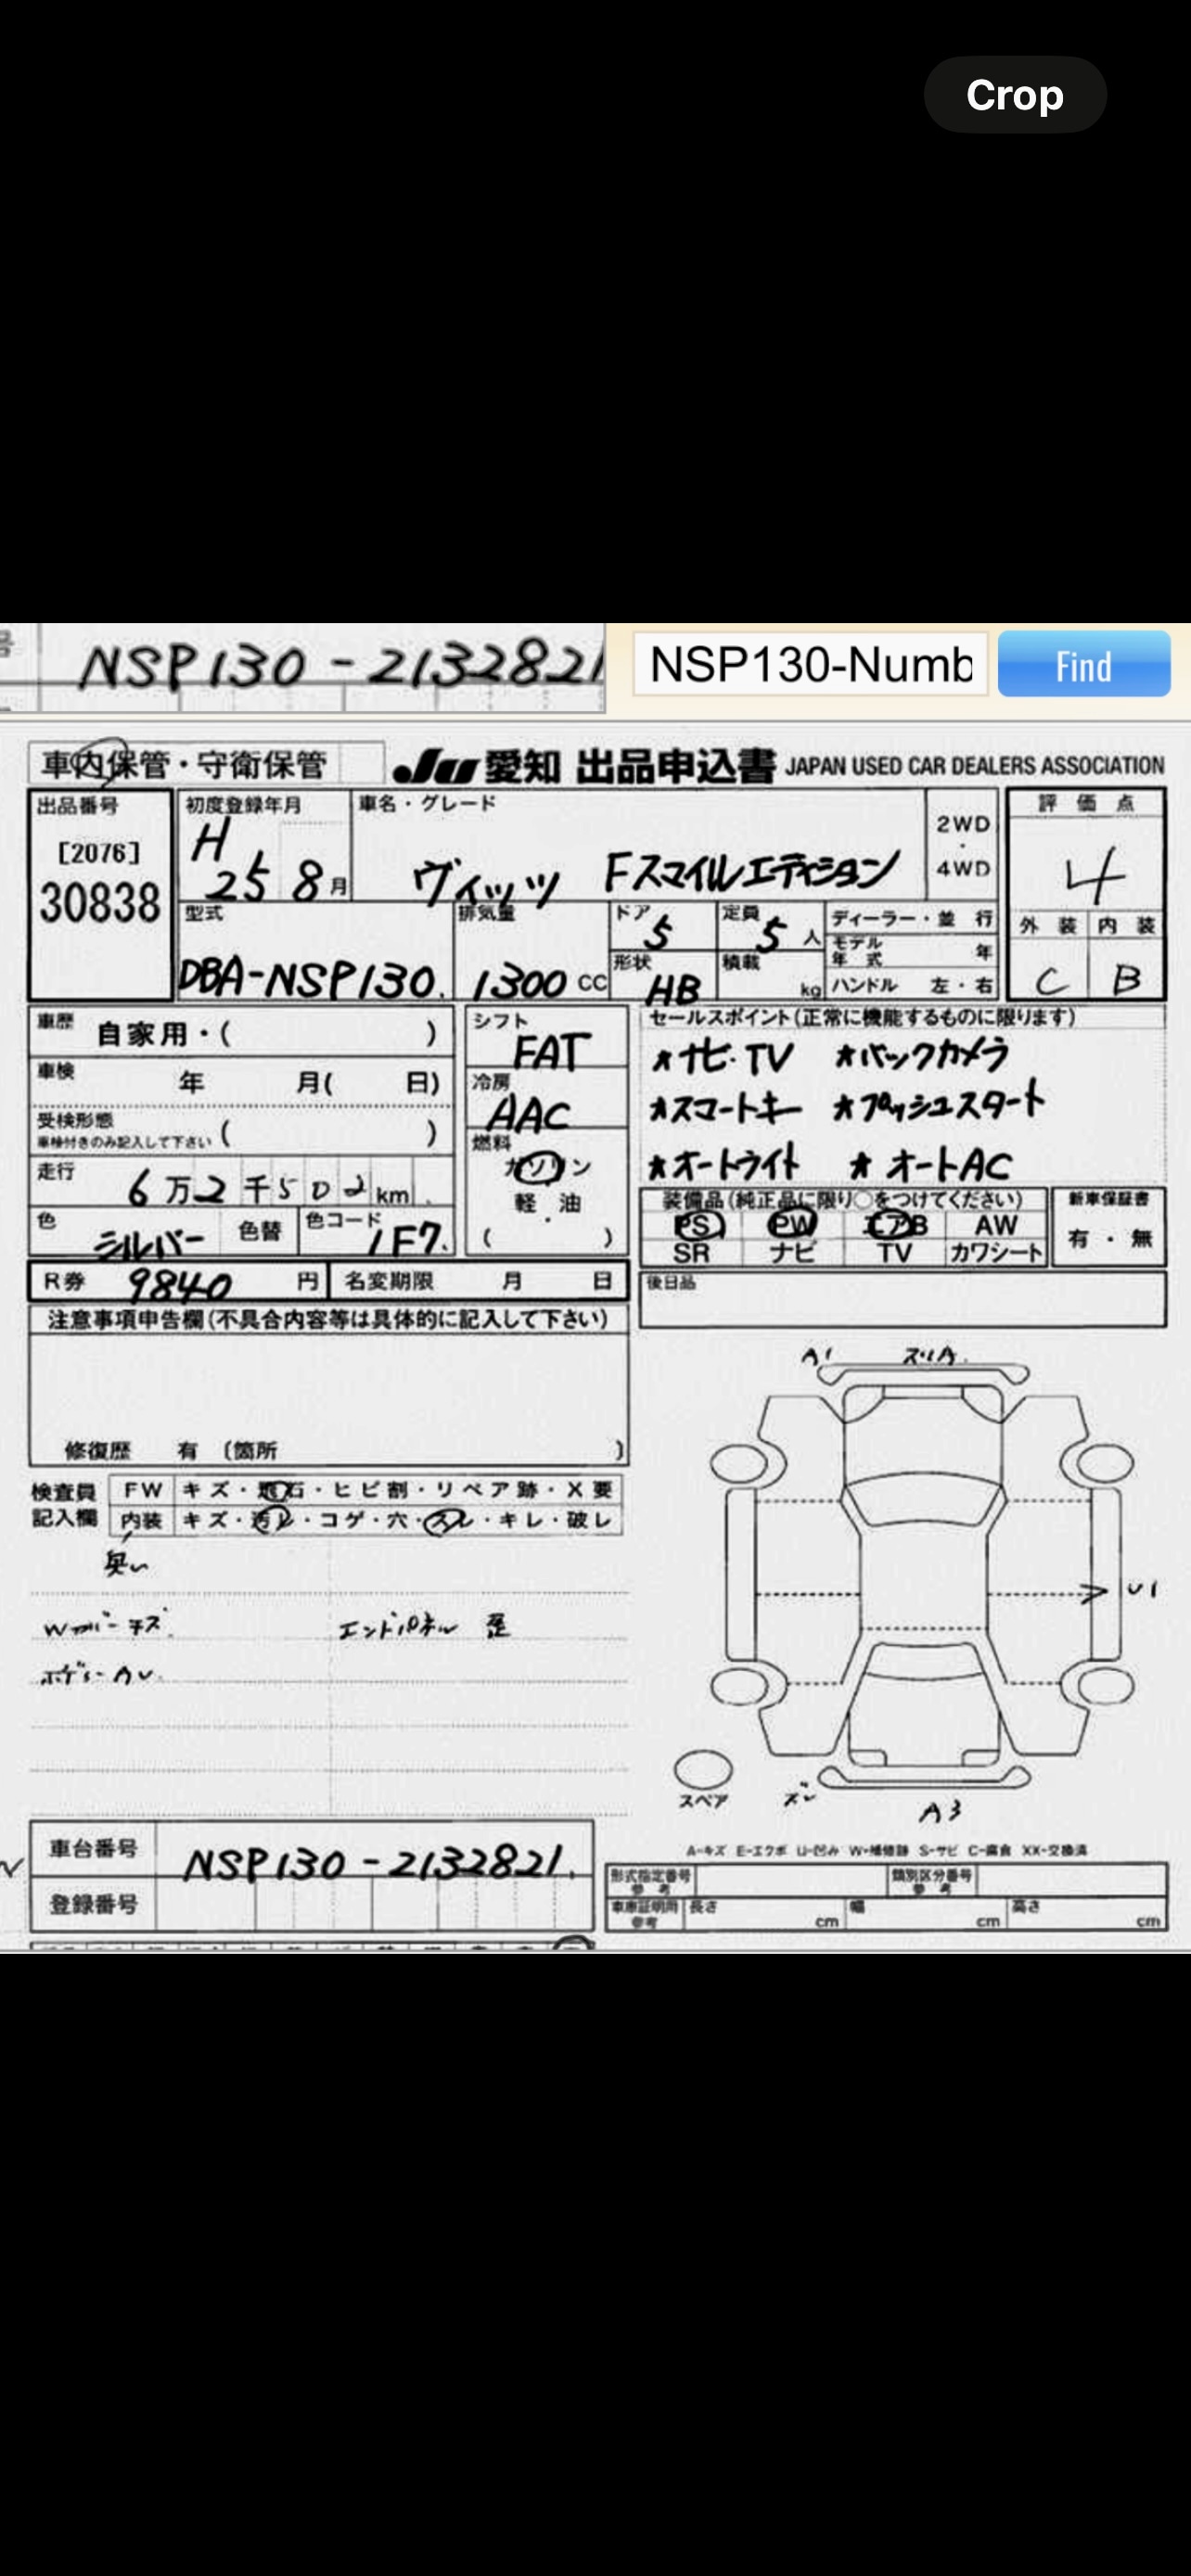 Crop
NSP130-2132821
NSP130-Numb
Find
車内保管・守衛保管
JU 愛知 出品申込書 JAPAN USED CAR DEALERS ASSOCIATION
出品番号
[2076]
30838
初度登録年月
H
25 8月
車名・グレード
ヴィッツ Fスマイルエディション
2WD
・
4WD
評価点
4
型式
DBA-NSP130.
排気量
1300 cc
ドア
5
定員
5 人
形状
HB
積載
kg
ディーラー・並行
モデル年式 年
ハンドル 左・右
外装 内装
C B
車歴 自家用・( )
車検 年 月( 日)
受検形態
車検付きのみ記入して下さい ( )
走行 6万2千502km
色 シルバー 色替 色コード 1F7.
シフト
FAT
冷房
AAC
燃料
ガソリン
・
軽油
( )
セールスポイント(正常に機能するものに限ります)
★ナビ・TV ★バックカメラ
★スマートキー ★プッシュスタート
★オートライト ★オートAC
装備品(純正品に限り○をつけてください)
PS PW エアB AW
SR ナビ TV カワシート
新車保証書
有・無
R券 9840 円 名変期限 月 日
後日品
注意事項申告欄(不具合内容等は具体的に記入して下さい)
修復歴 有 (箇所 )
検査員
記入欄
FW キズ・飛石・ヒビ割・リペア跡・X要
内装 キズ・汚レ・コゲ・穴・スレ・キレ・破レ
臭い
Wカバーキズ
エンドパネル 歪
ボディーAU.
A1
U1
スペア
A3
A-キズ E-エクボ U-凹み W-補修跡 S-サビ C-腐食 XX-交換済
車台番号 NSP130-2132821.
登録番号
形式指定番号
参考
類別区分番号
参考
車庫証明用
参考
長さ cm 幅 cm 高さ cm